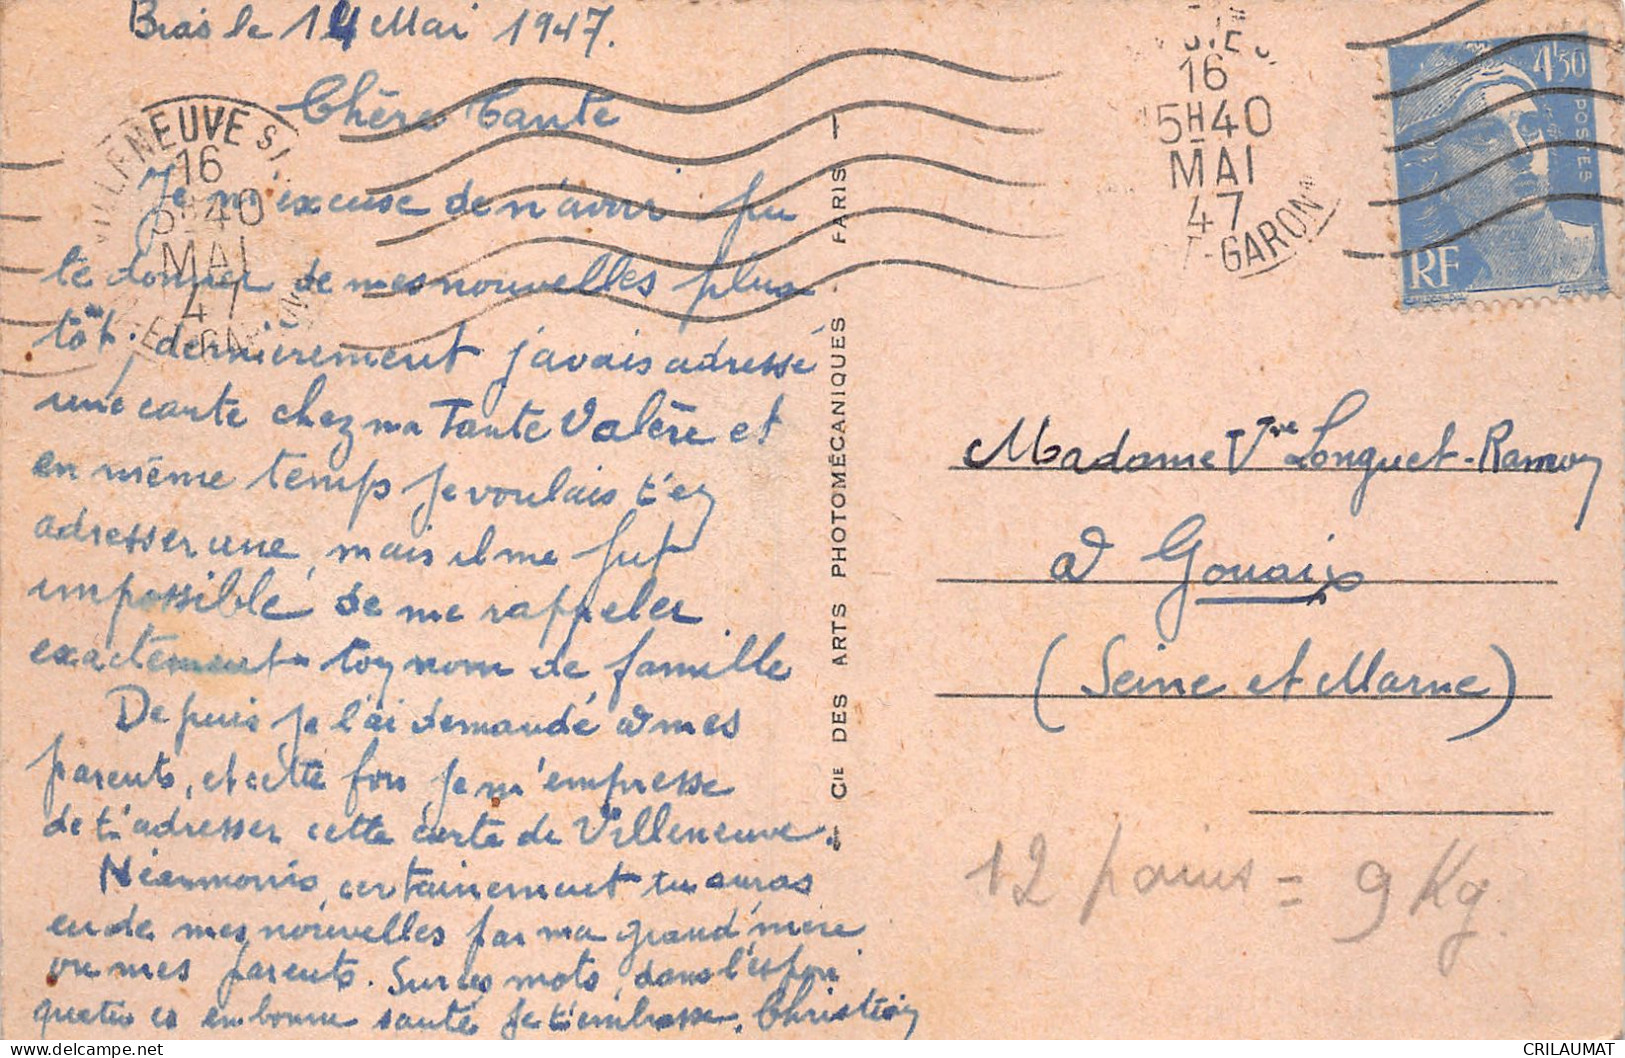 Bias le 14 Mai 1947.
Chère Tante
Je m'excuse de n'avoir pu
te donner de mes nouvelles plus
tôt ; dernièrement j'avais adressé
une carte chez ma Tante Valère et
en même temps je voulais t'en
adresser une, mais il me fut
impossible de me rappeler
exactement ton nom de famille
Depuis je l'ai demandé à mes
parents, et cette fois je m'empresse
de t'adresser cette carte de Villeneuve.
Néanmoins, certainement tu auras
eu de mes nouvelles par ma grand'mère
ou mes parents. Sur ces mots, dans l'espoir
que tu es en bonne santé je t'embrasse. Christian
VILLENEUVE S/
16
5H40
MAI
47
CIE DES ARTS PHOTOMÉCANIQUES - PARIS
16
5H40
MAI
47
-GARON
4F50
POSTES
RF
Madame Vve Longuet-Ramon
à Gouaix
(Seine et Marne)
12 pains = 9 Kg.
delcampe.net
CRILAUMAT